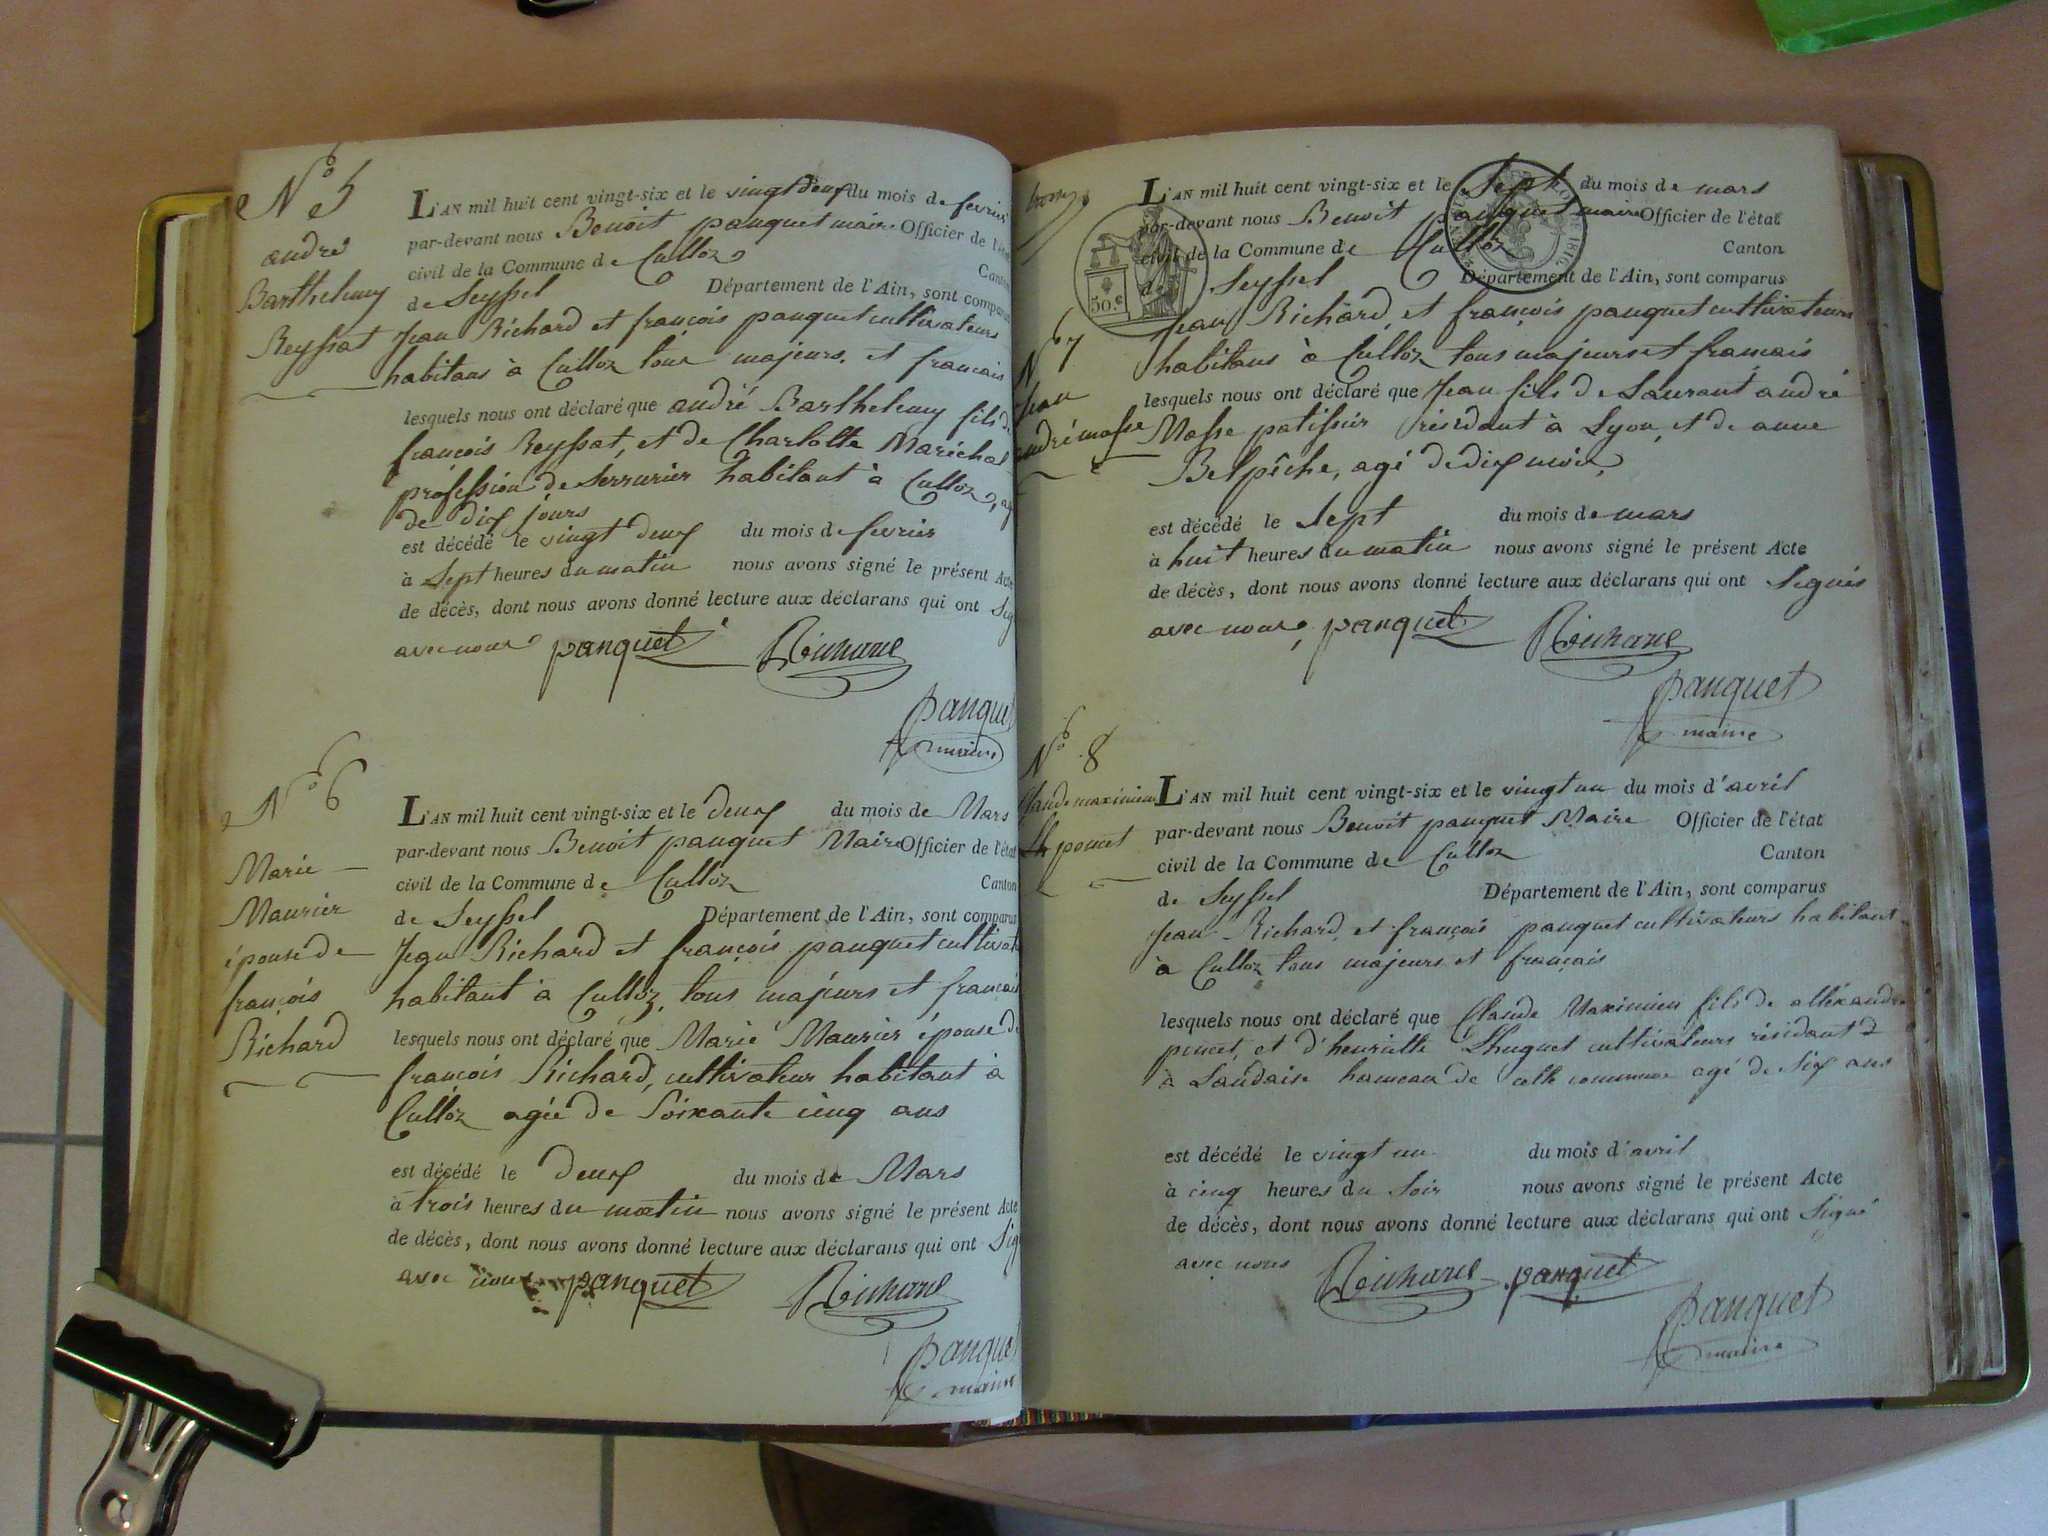 N° 5
andré
Barthelemy
Reyssat
L'AN mil huit cent vingt-six et le vingt deux du mois de fevrier
par-devant nous Benoit panquet maire Officier de l'état
civil de la Commune de Culloz Canton
de Seyssel Département de l'Ain, sont comparus
Jean Richard et françois panquet cultivateurs
habitans à Culloz tous majeurs et francais
lesquels nous ont déclaré que andré Barthelemy fils de
françois Reyssat, et de Charlotte Maréchal
profession de serrurier habitant à Culloz, agé
de dix jours
est décédé le vingt deux du mois de fevrier
à Sept heures du matin nous avons signé le présent Acte
de décès, dont nous avons donné lecture aux déclarans qui ont Sig
avec nous panquet Richard
panquet
maire
N° 6
Marie
Maurier
épouse de
françois
Richard
L'AN mil huit cent vingt-six et le deux du mois de Mars
par-devant nous Benoit panquet Maire Officier de l'état
civil de la Commune de Culloz Canton
de Seyssel Département de l'Ain, sont comparus
Jean Richard et françois panquet cultivat
habitant à Culloz, tous majeurs et francais
lesquels nous ont déclaré que Marie Maurier épouse de
francois Richard, cultivateur habitant à
Culloz agée de Soixante cinq ans
est décédé le deux du mois de Mars
à trois heures du matin nous avons signé le présent Acte
de décès, dont nous avons donné lecture aux déclarans qui ont Sig
avec nous panquet Richard
panquet
maire
50.c
N° 7
Jean
andré masse
L'AN mil huit cent vingt-six et le Sept du mois de mars
par-devant nous Benoit panquet maire Officier de l'état
civil de la Commune de Culloz Canton
de Seyssel Département de l'Ain, sont comparus
Jean Richard, et françois panquet cultivateurs
habitans à Culloz tous majeurs et francais
lesquels nous ont déclaré que Jean fils de Laurant andré
Masse patissier résidant à Lyon, et de anne
Belpêche, agé de dix mois,
est décédé le Sept du mois de mars
à huit heures du matin nous avons signé le présent Acte
de décès, dont nous avons donné lecture aux déclarans qui ont Signés
avec nous, panquet Richard
panquet
maire
N° 8
Claude maximien
poncet
L'AN mil huit cent vingt-six et le vingt un du mois d'avril
par-devant nous Benoit panquet Maire Officier de l'état
civil de la Commune de Culloz Canton
de Seyssel Département de l'Ain, sont comparus
Jean Richard, et françois panquet cultivateurs habitant
à Culloz tous majeurs et français
lesquels nous ont déclaré que Claude Maximien fils de alléxandre
poncet, et d'henriette Lhuguet cultivateurs résidant
à Landaise hameau de cette commune agé de Six ans
est décédé le vingt un du mois d'avril
à cinq heures du Soir nous avons signé le présent Acte
de décès, dont nous avons donné lecture aux déclarans qui ont Signé
avec nous Richard panquet
panquet
maire